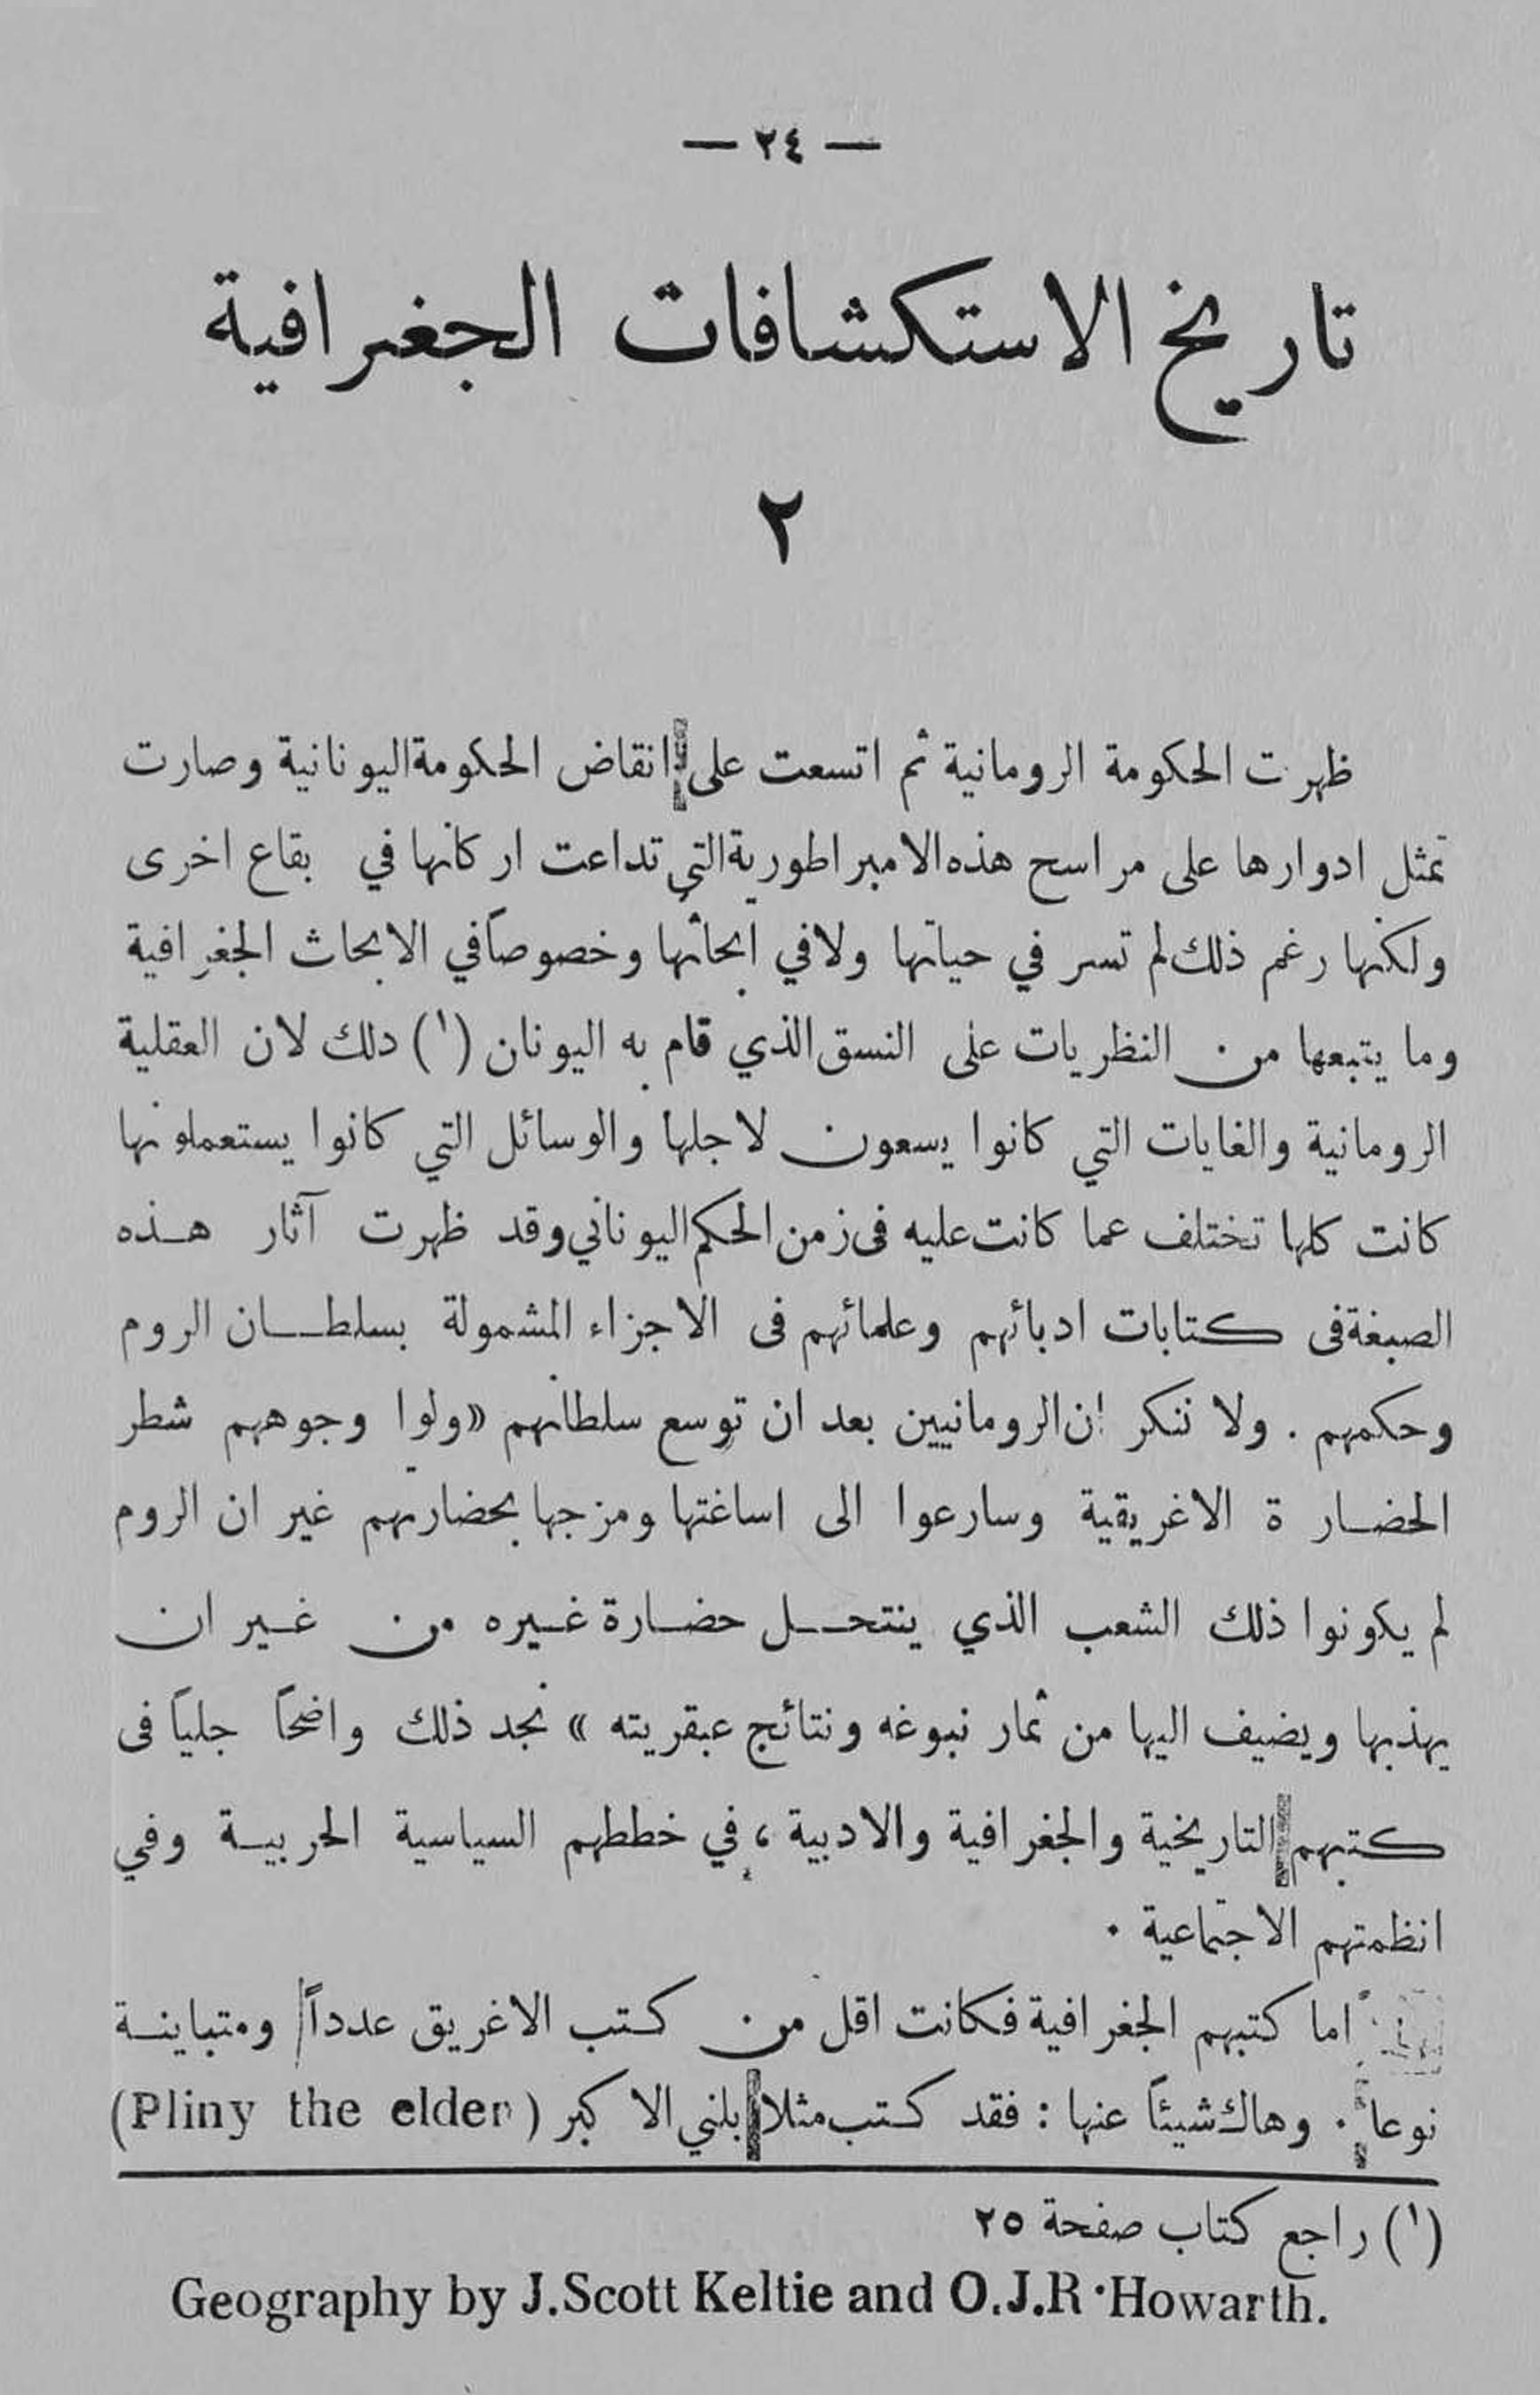 — ٢٤ —
تاريخ الاستكشافات الجغرافية
٢
ظهرت الحكومة الرومانية ثم اتسعت على انقاض الحكومة اليونانية وصارت
تمثل ادوارها على مراسح هذه الامبراطورية التي تداعت اركانها في بقاع اخرى
ولكنها رغم ذلك لم تسر في حياتها ولا في ابحاثها وخصوصاً في الابحاث الجغرافية
وما يتبعها من النظريات على النسق الذي قام به اليونان (١) دلك لان العقلية
الرومانية والغايات التي كانوا يسعون لاجلها والوسائل التي كانوا يستعملونها
كانت كلها تختلف عما كانت عليه فى زمن الحكم اليوناني وقد ظهرت آثار هذه
الصبغة فى كتابات ادبائهم وعلمائهم فى الاجزاء المشمولة بسلطان الروم
وحكمهم . ولا ننكر ان الرومانيين بعد ان توسع سلطانهم «ولوا وجوههم شطر
الحضارة الاغريقية وسارعوا الى اساغتها ومزجها بحضارتهم غير ان الروم
لم يكونوا ذلك الشعب الذي ينتحل حضارة غيره من غير ان
يهذبها ويضيف اليها من ثمار نبوغه ونتائج عبقريته » نجد ذلك واضحاً جلياً فى
كتبهم التاريخية والجغرافية والادبية ، في خططهم السياسية الحربية وفي
انظمتهم الاجتماعية .
اما كتبهم الجغرافية فكانت اقل من كتب الاغريق عدداً ومتباينة
نوعا . وهاك شيئاً عنها : فقد كتب مثلا بلني الاكبر (Pliny the elder)
(١) راجع كتاب صفحة ٢٥
Geography by J.Scott Keltie and O.J.R.Howarth.